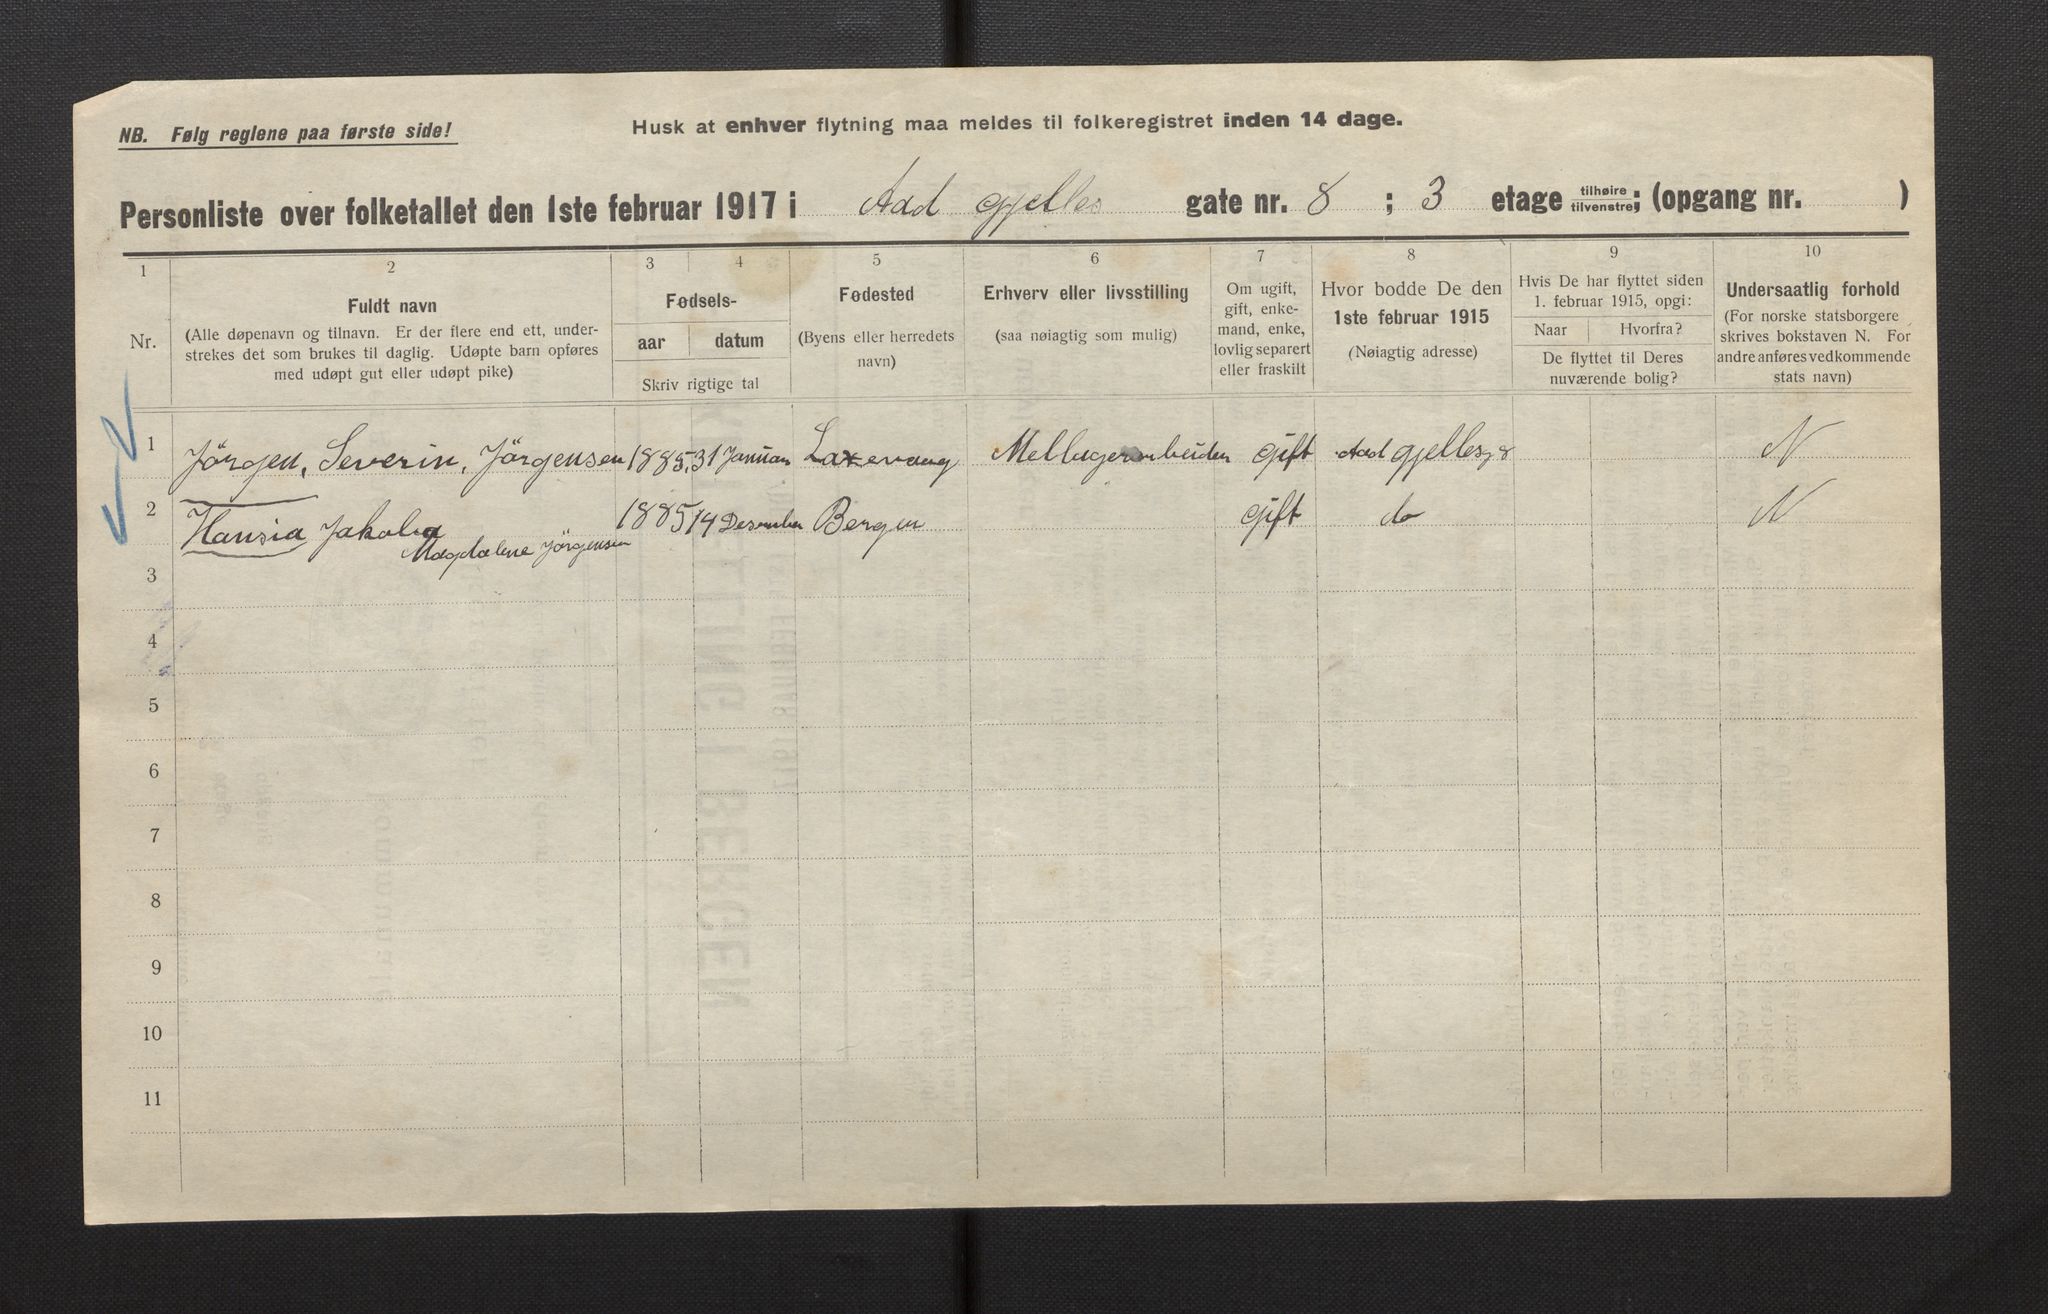 NB. Følg reglene paa første side!
Husk at enhver flytning maa meldes til folkeregistret inden 14 dage.
Personliste over folketallet den 1ste februar 1917 i Aad Gjelles gate nr. 8 ; 3 etage tilhøire tilvenstre; (opgang nr. )
1 2 3 4 5 6 7 8 9 10
Nr.
Fuldt navn
(Alle døpenavn og tilnavn. Er der flere end ett, under-
strekes det som brukes til daglig. Udøpte barn opføres
med udøpt gut eller udøpt pike)
Fødsels-
aar datum
Skriv rigtige tal
Fødested
(Byens eller herredets
navn)
Erhverv eller livsstilling
(saa nøiagtig som mulig)
Om ugift,
gift, enke-
mand, enke,
lovlig separert
eller fraskilt
Hvor bodde De den
1ste februar 1915
(Nøiagtig adresse)
Hvis De har flyttet siden
1. februar 1915, opgi:
Naar Hvorfra?
De flyttet til Deres
nuværende bolig?
Undersaatlig forhold
(For norske statsborgere
skrives bokstaven N. For
andre anføres vedkommende
stats navn)
1 Jörgen, Severin, Jörgensen 1885 31 Januar Laxevaag Mellagerarbeider gift Aad Gjellesg 8 N
2 Hansia Jakoba 1885 14 Desember Bergen gift do N
Magdalene Jörgensen
3
4
5
6
7
8
9
10
11